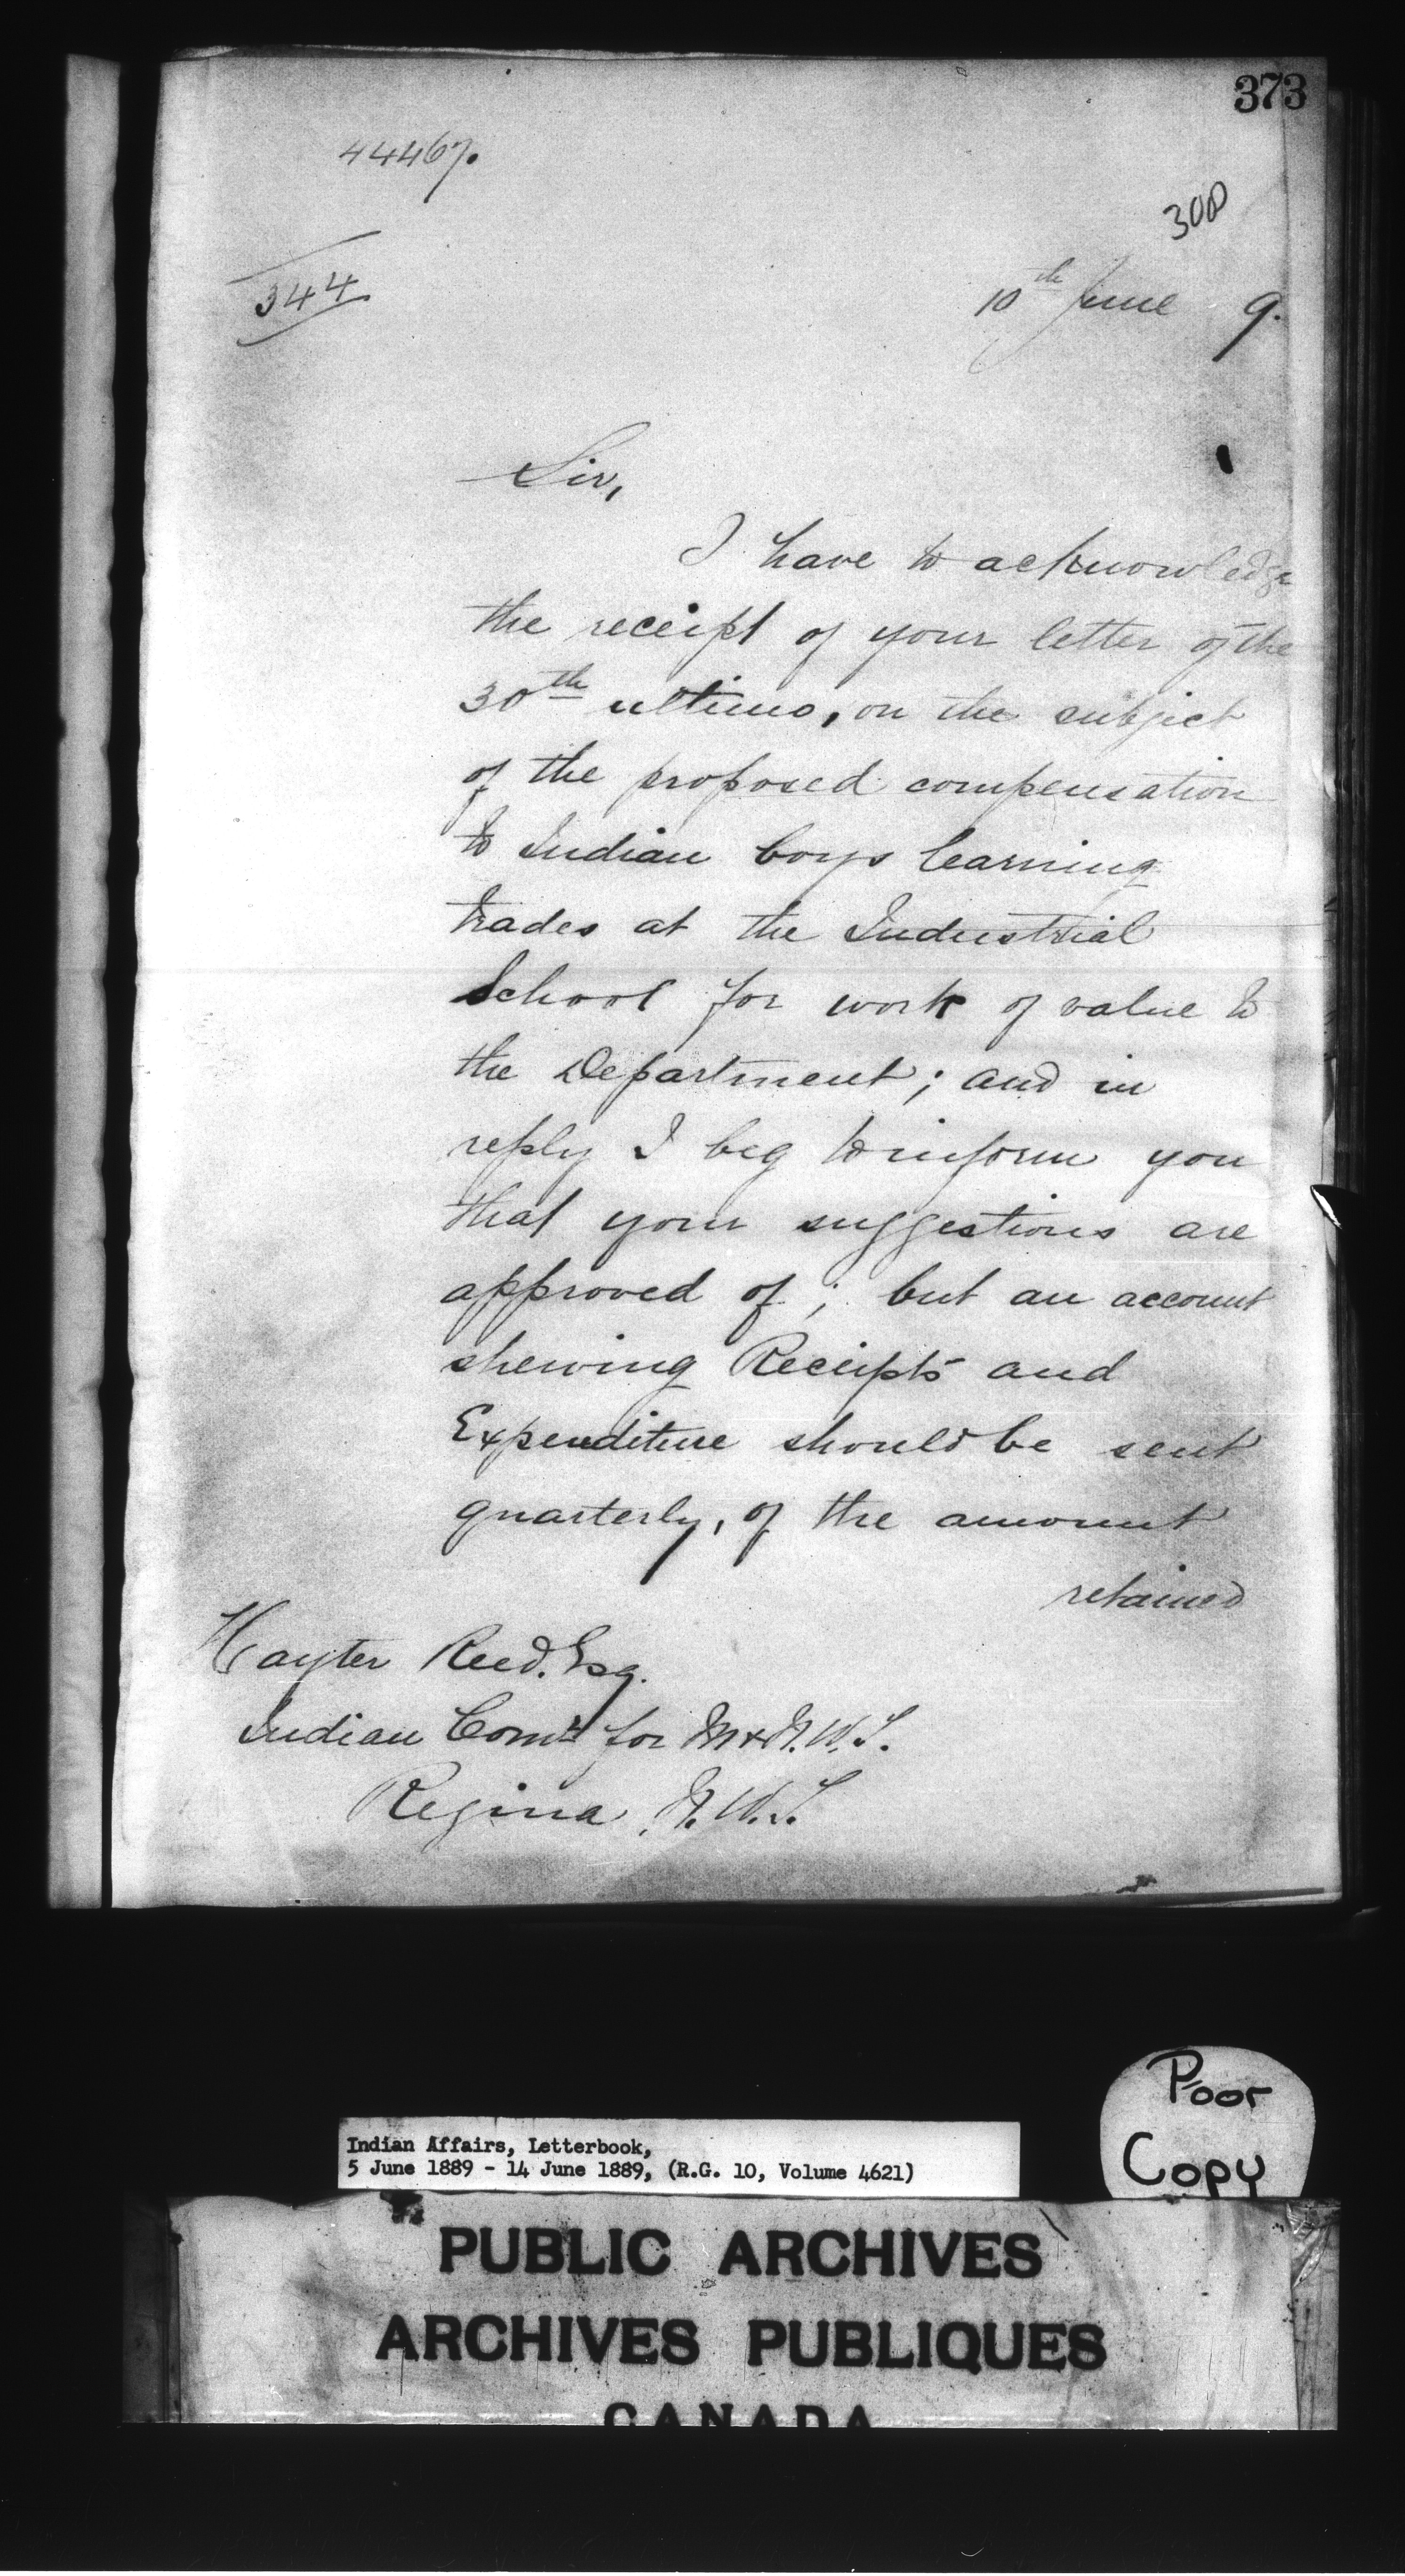 373
44467.
308
344
10th June 9.
Sir,
I have to acknowledge
the receipt of your letter of the
30th ultimo, on the subject
of the proposed compensation
to Indian boys learning
trades at the Industrial
School for work of value to
the Department; and in
reply I beg to inform you
that your suggestions are
approved of; but an account
shewing Receipts and
Expenditure should be sent
quarterly, of the amount
retained
Hayter Reed. Esq.
Indian Comr for M & N.W.T.
Regina, N.W.T.
Poor
Copy
Indian Affairs, Letterbook,
5 June 1889 - 14 June 1889, (R.G. 10, Volume 4621)
PUBLIC ARCHIVES
ARCHIVES PUBLIQUES
CANADA